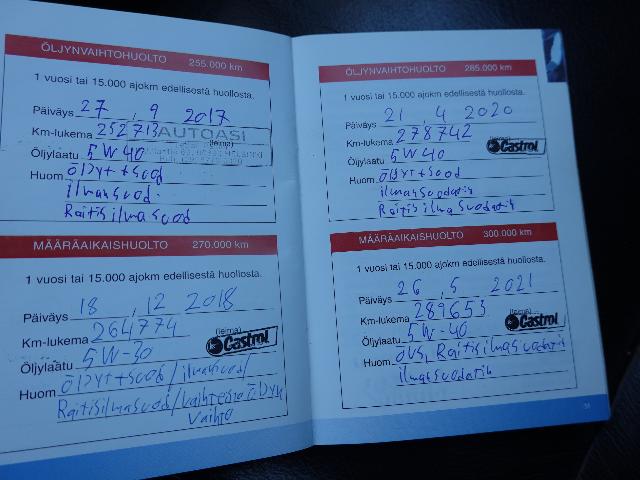 ÖLJYNVAIHTOHUOLTO 255.000 km
1 vuosi tai 15.000 ajokm edellisestä huollosta.
Päiväys 27 . 9 2017
Km-lukema 252713 AUTOASI
(leima)
Öljylaatu 5W40
Huom ÖLJYT + Suod
ilmansuod.
Raitisilmasuod
MÄÄRÄAIKAISHUOLTO 270.000 km
1 vuosi tai 15.000 ajokm edellisestä huollosta.
Päiväys 18 . 12 2018
Km-lukema 264774
(leima)
Öljylaatu 5W-30 Castrol
Huom ÖLJYT+Suod/ilmansuod/
Raitisilmasuod/vaihteisto ÖLJYN
vaihto
ÖLJYNVAIHTOHUOLTO 285.000 km
1 vuosi tai 15.000 ajokm edellisestä huollosta.
Päiväys 21 . 4 2020
Km-lukema 278742
(leima)
Öljylaatu 5W40 Castrol
Huom ÖLJYT+Suod
ilmansuodatin
Raitisilmasuodatin
MÄÄRÄAIKAISHUOLTO 300.000 km
1 vuosi tai 15.000 ajokm edellisestä huollosta.
Päiväys 26 . 5 2021
Km-lukema 289653
(leima)
Öljylaatu 5W-40 Castrol
Huom ÖVS, Raitisilmasuodatin
ilmansuodatin